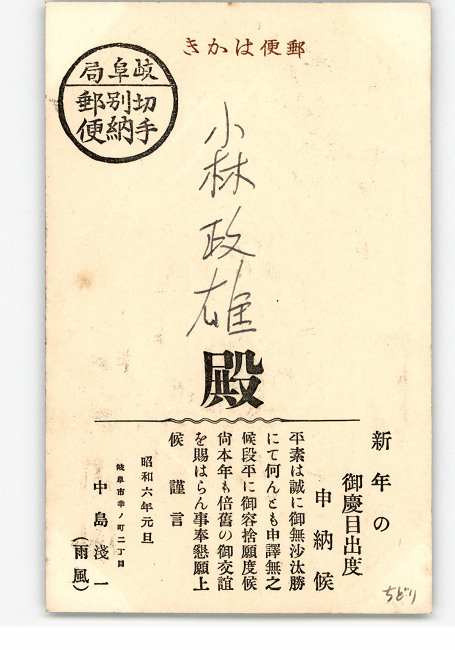 郵便はかき
岐阜局
切手別納郵便
小林政雄
殿
新年の
御慶目出度
申納候
平素は誠に御無沙汰勝
にて何んとも申譯無之
候段平に御容捨願度候
尙本年も倍舊の御交誼
を賜はらん事奉懇願上
候 謹言
昭和六年元旦
岐阜市幸ノ町二丁目
中島淺一
(雨風)
ちどり